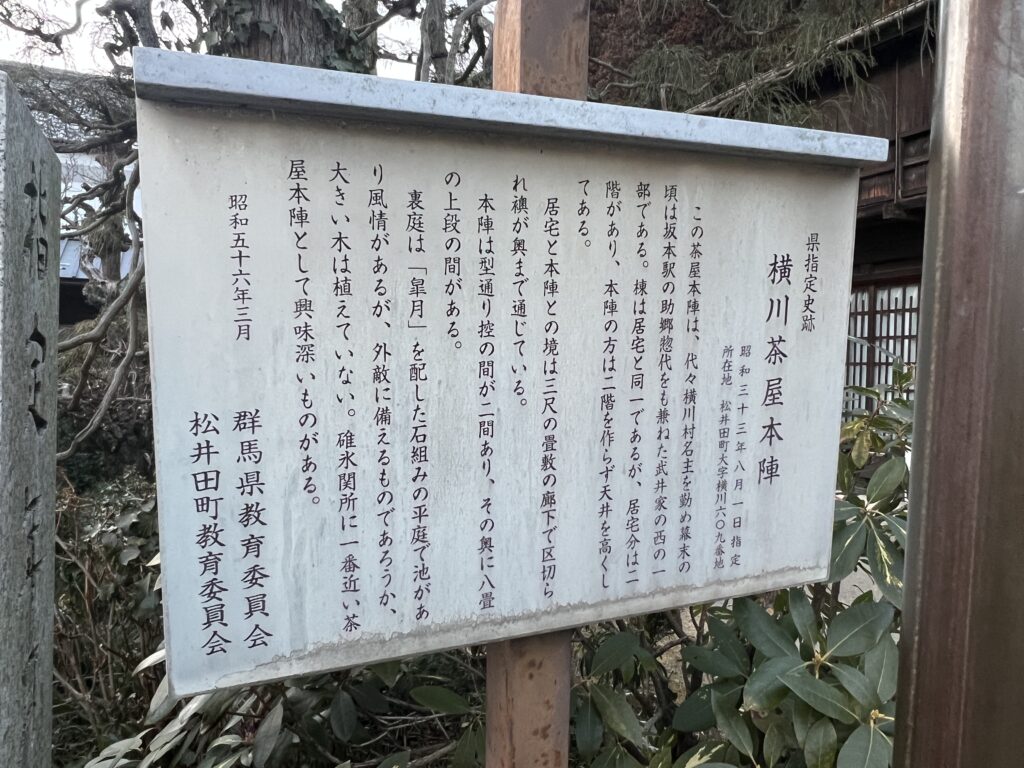 県指定史跡
横川茶屋本陣
昭和三十三年八月一日指定
所在地 松井田町大字横川六〇九番地
この茶屋本陣は、代々横川村名主を勤め幕末の
頃は坂本駅の助郷惣代をも兼ねた武井家の西の一
部である。棟は居宅と同一であるが、居宅分は二
階があり、本陣の方は二階を作らず天井を高くし
てある。
居宅と本陣との境は三尺の畳敷の廊下で区切ら
れ襖が奥まで通じている。
本陣は型通り控の間が二間あり、その奥に八畳
の上段の間がある。
裏庭は「皐月」を配した石組みの平庭で池があ
り風情があるが、外敵に備えるものであろうか、
大きい木は植えていない。碓氷関所に一番近い茶
屋本陣として興味深いものがある。
昭和五十六年三月
群馬県教育委員会
松井田町教育委員会